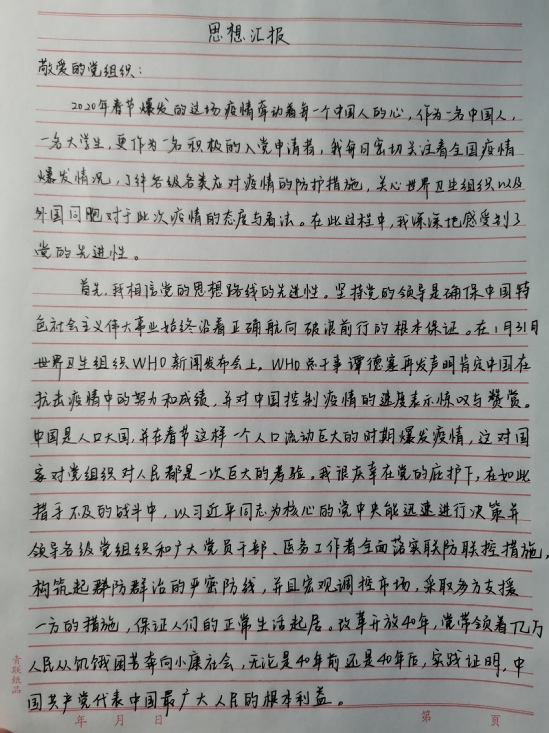 思想汇报
敬爱的党组织：
2020年春节爆发的这场疫情牵动着每一个中国人的心，作为一名中国人，
一名大学生，更作为一名积极的入党申请者，我每日密切关注着全国疫情
爆发情况，了解各级各类应对疫情的防护措施，关心世界卫生组织以及
外国同胞对于此次疫情的态度与看法。在此过程中，我深深地感受到了
党的先进性。
首先，我相信党的思想路线的先进性。坚持党的领导是确保中国特
色社会主义伟大事业始终沿着正确航向破浪前行的根本保证。在1月31日
世界卫生组织WHO新闻发布会上，WHO总干事谭德塞再发声明肯定中国在
抗击疫情中的努力和成绩，并对中国控制疫情的速度表示惊叹与赞赏。
中国是人口大国，并在春节这样一个人口流动巨大的时期爆发疫情，这对国
家对党组织对人民都是一次巨大的考验。我很庆幸在党的庇护下，在如此
措手不及的战斗中，以习近平同志为核心的党中央能迅速进行决策并
领导各级党组织和广大党员干部、医务工作者全面落实联防联控措施，
构筑起群防群治的严密防线，并且宏观调控市场，采取多方支援
一方的措施，保证人们的正常生活起居。改革开放40年，党带领着亿万
人民从饥饿困苦奔向小康社会，无论是40年前还是40年后，实践证明，中
国共产党代表中国最广大人民的根本利益。
青联纸品
年 月 日 第 页